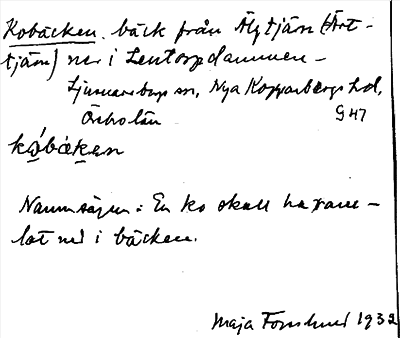 Kobäcken. bäck från Älgtjärn (Ört-
tjärn) ner i Lentorpdammen -
Ljusnarsbergs sn, Nya Kopparbergs hd,
Örebro län G 47
kóbäken
Namnsägen: En ko skall ha ramlat
lat ned i bäcken.
Maja Forslund 1932